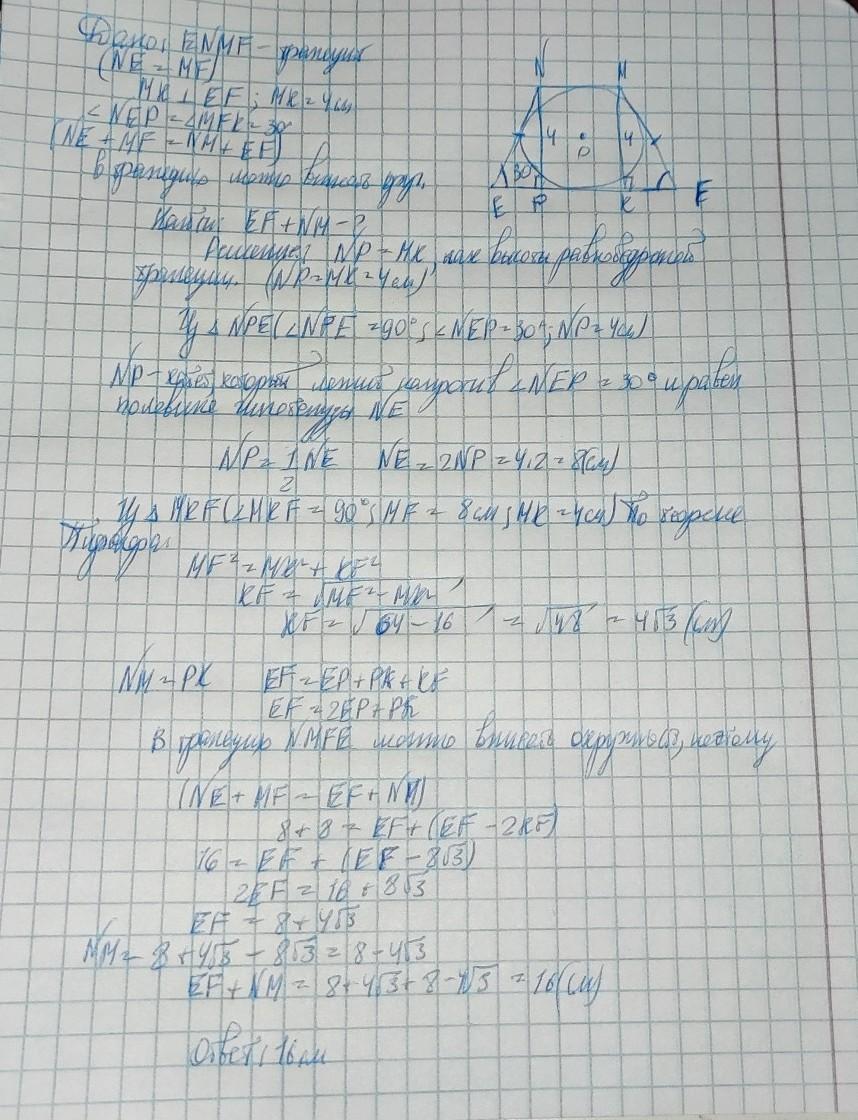 Дано: ENMF - трапеция
(NE = MF)
MK ⊥ EF; MK = 4 см
∠NEP = ∠MFK = 30°
(NE + MF = NM + EF)
В трапецию можно вписать окр.
N M
4 4
O
30°
E P K F
Найти: EF + NM - ?
Решение: NP = MK, как высоты равнобедренной
трапеции. (NP = MK = 4 см)
Из △ NPE (∠NPE = 90°; ∠NEP = 30°; NP = 4 см)
NP - катет, который лежит напротив ∠NEP = 30° и равен
половине гипотенузы NE
NP = 1/2 NE NE = 2NP = 4·2 = 8(см)
Из △ MKF (∠MKF = 90°; MF = 8 см; MK = 4 см) По теореме
Пифагора:
MF² = MK² + KF²
KF = √MF² - MK²
KF = √64 - 16 = √48 = 4√3 (см)
NM = PK EF = EP + PK + KF
EF = 2EP + PK
В трапецию NMFE можно вписать окружность, поэтому
(NE + MF = EF + NM)
8 + 8 = EF + (EF - 2KF)
16 = EF + (EF - 8√3)
2EF = 16 + 8√3
EF = 8 + 4√3
NM = 8 + 4√3 - 8√3 = 8 - 4√3
EF + NM = 8 + 4√3 + 8 - 4√3 = 16(см)
Ответ: 16 см